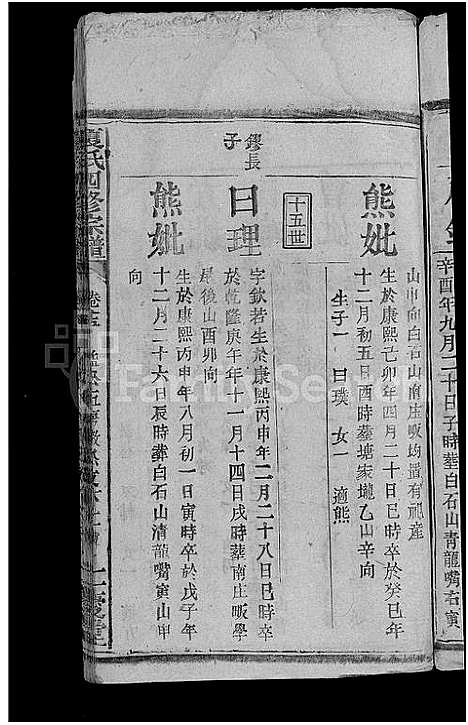 辛酉年九月二十日子時葬白石山青龍嘴右寅
山申向白石山南庄畈均置有祀産
熊妣
生於康熙己卯年四月二十日巳時卒於癸巳年
十二月初五日酉時葬塘家壠乙山辛向
生子一 日璞 女一 適熊
十五世
鏐長子
日理
字欽若生於康熙丙申年二月二十八日巳時卒
於乾隆庚午年十一月十四日戌時葬南庄畈學
屋後山酉卯向
熊妣
生於康熙丙申年八月初一日寅時卒於戊子年
十二月二十六日辰時葬白石山清龍嘴寅山申
向
夏氏四修宗譜
FamilySearch